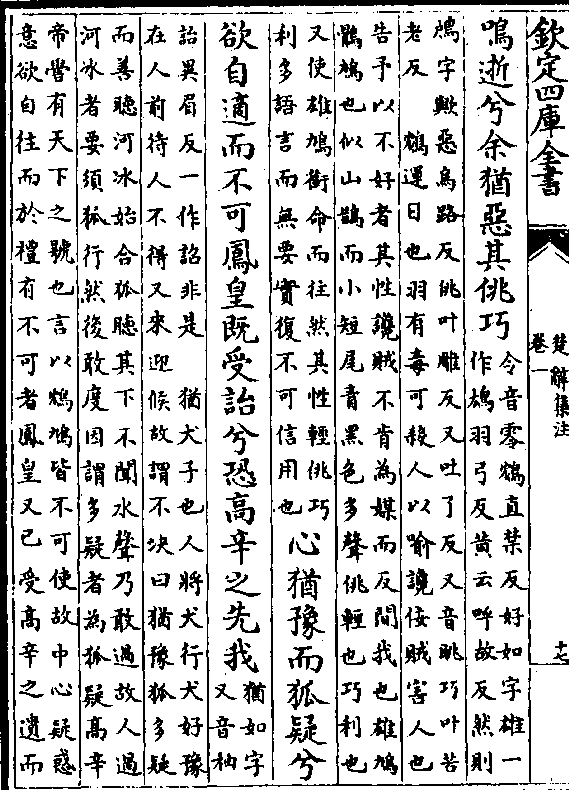 欽定四庫全書
楚辭集注
卷一
十七
鳴逝兮余猶惡其佻巧
令音零鴆直禁反好如字雄一
作鳩羽弓反黄云呼故反然則
鳩字歟惡烏路反佻叶雕反又吐了反又音眺巧叶苦
老反 鴆運日也羽有毒可殺人以喻讒佞賊害人也
告予以不好者其性讒賊不肯為媒而反間我也雄鳩
鶻鳩也似山鵲而小短尾青黑色多聲佻輕也巧利也
又使雄鳩銜命而往然其性輕佻巧
利多語言而無要實復不可信用也
心猶豫而狐疑兮
欲自適而不可鳳皇既受詒兮恐高辛之先我
猶如字
又音柚
詒異眉反一作詔非是 猶犬子也人將犬行犬好豫
在人前待人不得又來迎候故謂不决曰猶豫狐多疑
而善聽河冰始合狐聽其下不聞水聲乃敢過故人過
河冰者要須狐行然後敢度因謂多疑者為狐疑高辛
帝嚳有天下之號也言以鴆鳩皆不可使故中心疑惑
意欲自往而於禮有不可者鳳皇又已受高辛之遺而